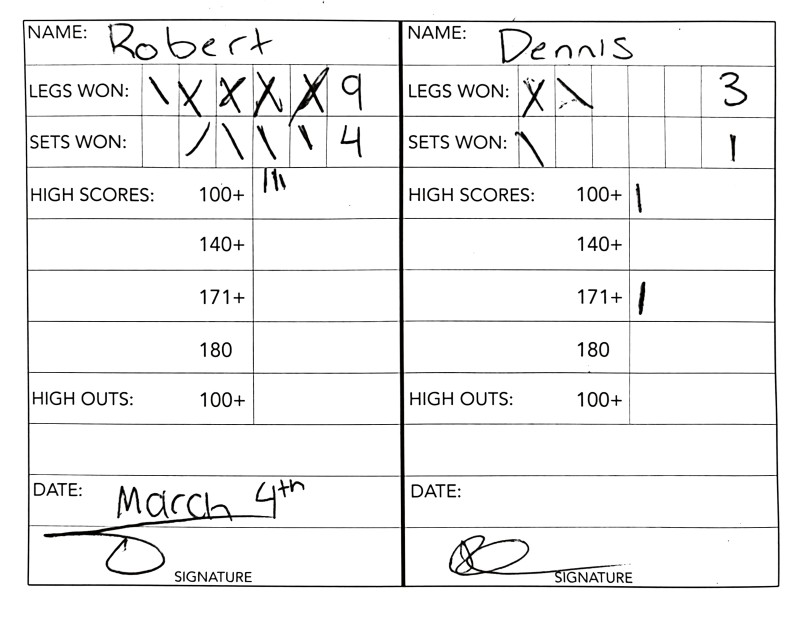 NAME: Robert
LEGS WON: \ X X X X 9
SETS WON: / \ \ \ 4
HIGH SCORES: 100+ ||||
140+
171+
180
HIGH OUTS: 100+
DATE: March 4th
SIGNATURE
NAME: Dennis
LEGS WON: X \ 3
SETS WON: \ 1
HIGH SCORES: 100+ |
140+
171+ |
180
HIGH OUTS: 100+
DATE:
SIGNATURE